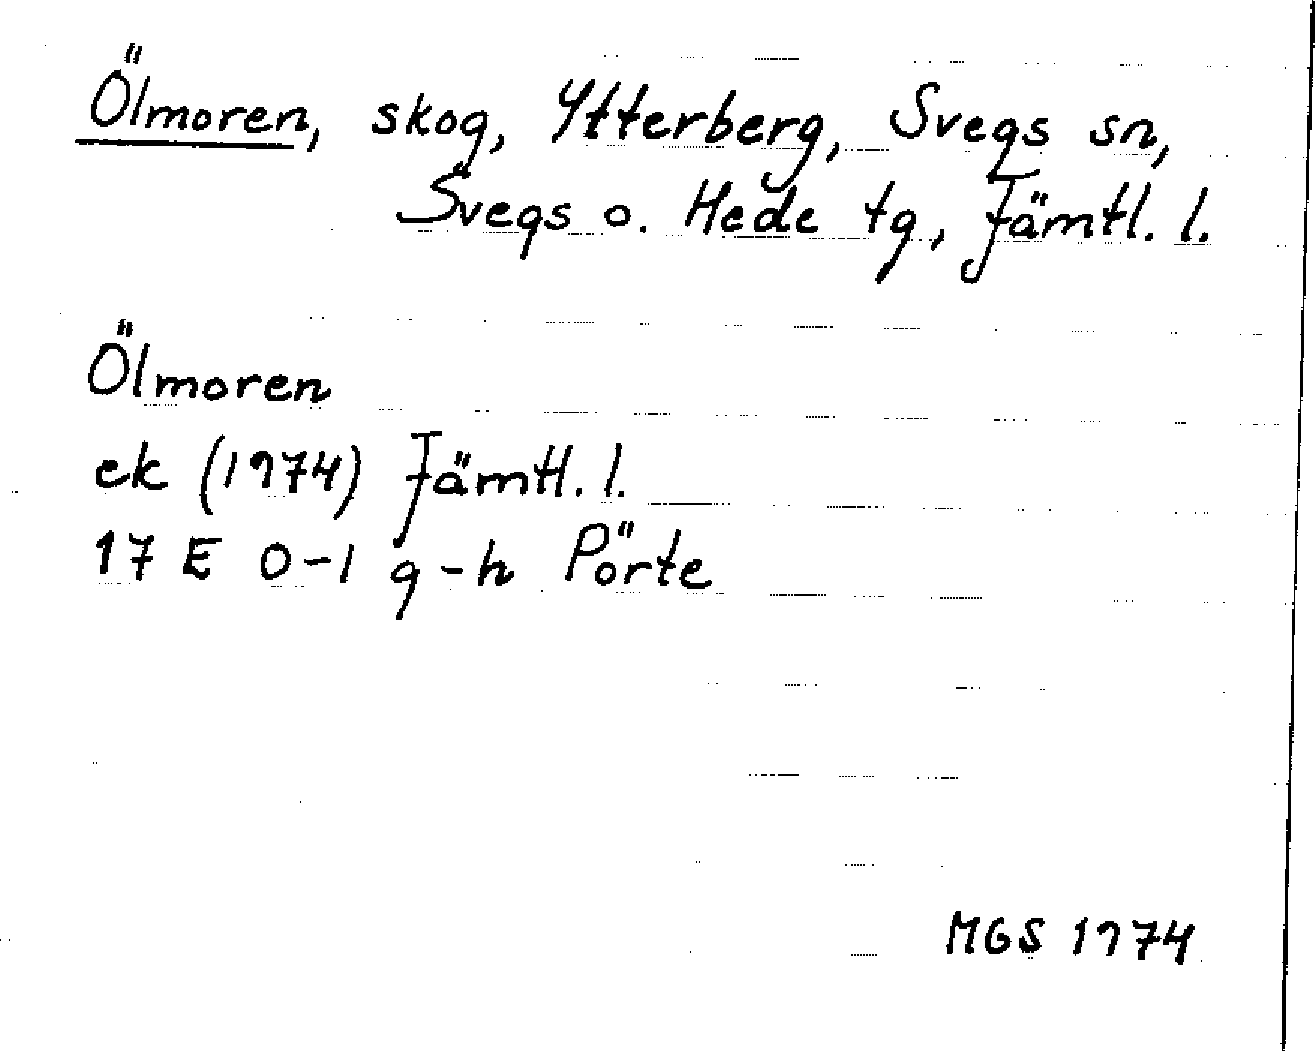 Ölmoren, skog, Ytterberg, Svegs sn,
Svegs o. Hede tg, Jämtl. l.
Ölmoren
ek (1974) Jämtl. l.
17 E 0-1 g-h Pörte
MGS 1974